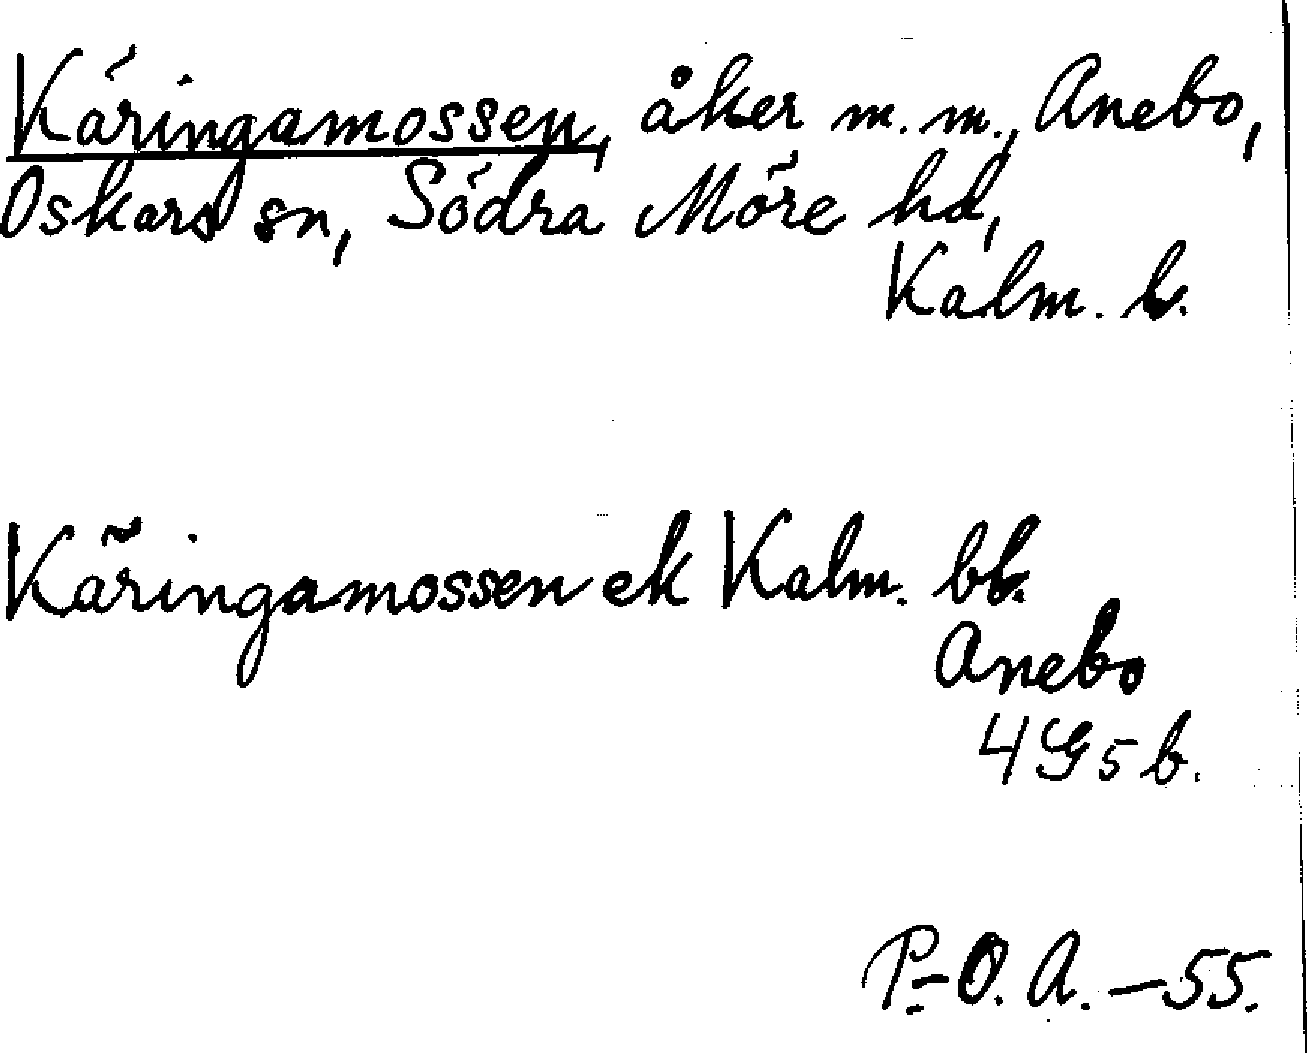 Käringamossen, åker m.m., Anebo,
Oskars sn, Södra Möre hd,
Kalm. l.
Käringamossen ek Kalm. bl.
Anebo
4G5b.
P.-O. A. -55.